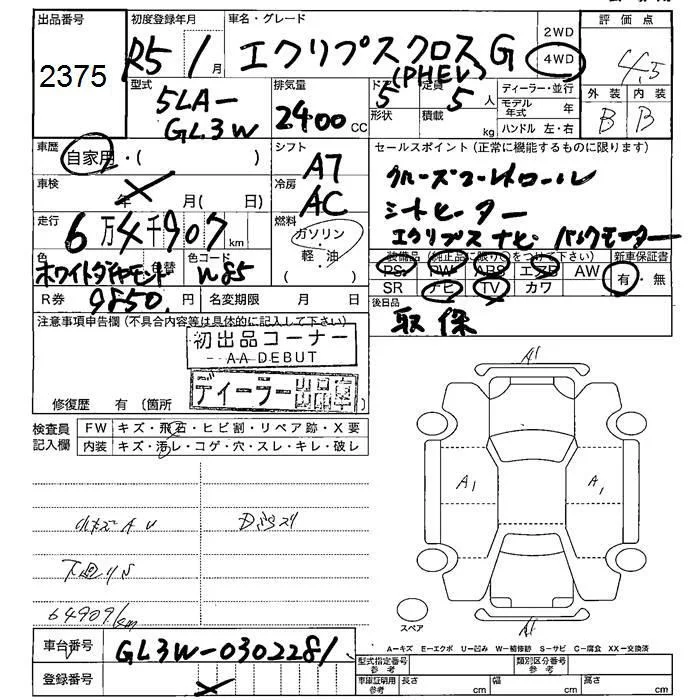 出品番号 初度登録年月 車名・グレード 評価点
2375 R5 1月 エクリプスクロス G (PHEV) 2WD 4WD 4.5
型式 排気量 ドア 定員 ディーラー・並行 外装 内装
5LA-GL3W 2400cc 5 5人 モデル年式 年 B B
形状 積載 kg ハンドル 左・右
車歴 シフト セールスポイント(正常に機能するものに限ります)
自家用・( ) A7 クルーズコントロール
車検 冷房 シートヒーター
年 月( 日) AC エクリプスナビ バックモニター
走行 燃料 装備品(純正品に限り○をつけて下さい) 新車保証書
6万4千907km ガソリン・軽油 PS PW ABS エアB AW 有・無
色 色替 色コード SR ナビ TV カワ
ホワイトダイヤモンド W85 後日品
R券 9850円 名変期限 月 日 取 保
注意事項申告欄(不具合内容等は具体的に記入して下さい)
初出品コーナー
AA DEBUT
ディーラー出品車
修復歴 有(箇所
検査員記入欄 FW キズ・飛石・ヒビ割・リペア跡・X要
内装 キズ・汚レ・コゲ・穴・スレ・キレ・破レ
A1
A1 A1
小キズAU
下廻りS
64909km
スペア
A1
A=キズ E=エクボ U=凹み W=補修跡 S=サビ C=腐食 XX=交換済
車台番号 GL3W-0302281
型式指定番号 類別区分番号
登録番号 車庫証明用参考 長さ cm 幅 cm 高さ cm